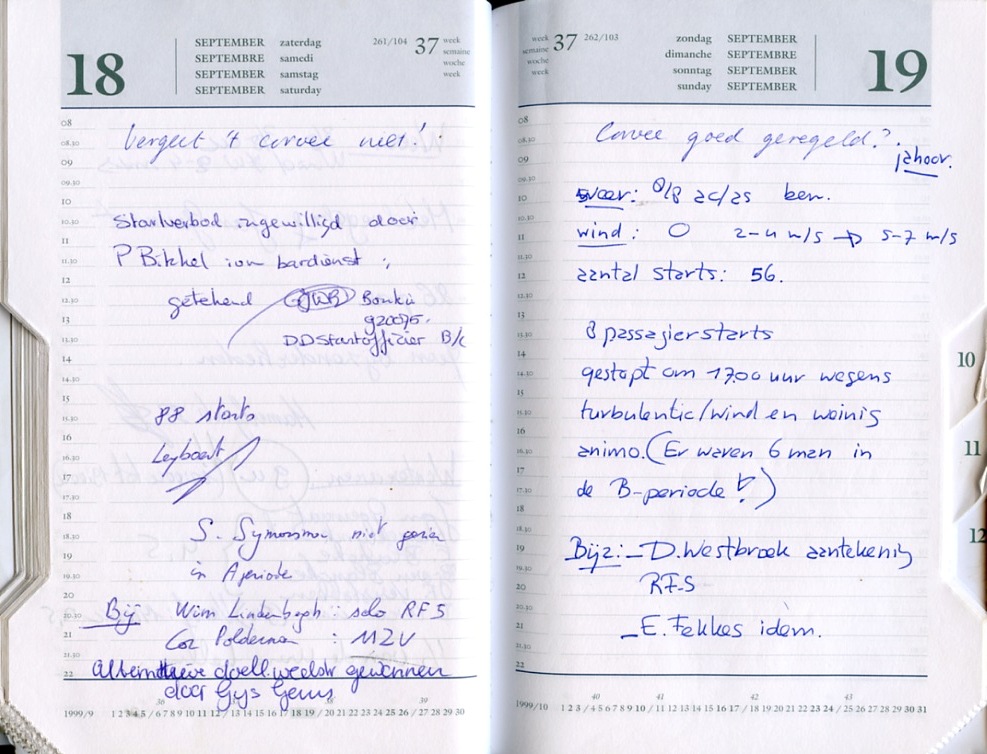 18
SEPTEMBER zaterdag
SEPTEMBRE samedi
SEPTEMBER samstag
SEPTEMBER saturday
261/104 37 week
semaine
woche
week
08
08.30
09
09.30
10
10.30
11
11.30
12
12.30
13
13.30
14
14.30
15
15.30
16
16.30
17
17.30
18
18.30
19
19.30
20
20.30
21
21.30
22
Vergeet 't corvee niet!
Startverbod ingewilligd door
P Bikkel ivm bardienst
getekend
920075.
DD Startofficier B/C
88 starts
S. niet gezien
in A periode
Bij Wim Lindenbergh : solo RF5
Cor Polderman : MZV
Alternatieve doell.wedstr gewonnen
door Gijs
36 38 39
1999/9 1 2 3 4 5 / 6 7 8 9 10 11 12 / 13 14 15 16 17 18 19 / 20 21 22 23 24 25 26 / 27 28 29 30
week
semaine
woche
week
37 262/103
zondag SEPTEMBER
dimanche SEPTEMBRE
sonntag SEPTEMBER
sunday SEPTEMBER
19
08
08.30
09
09.30
10
10.30
11
11.30
12
12.30
13
13.30
14
14.30
15
15.30
16
16.30
17
17.30
18
18.30
19
19.30
20
20.30
21
21.30
22
Corvee goed geregeld?
jahoor.
weer: 0/8 ac/as ben.
wind: O 2-4 m/s → 5-7 m/s
aantal starts: 56.
8 passagierstarts
gestopt om 17.00 uur wegens
turbulentie/wind en weinig
animo. (Er waren 6 man in
de B-periode !)
Bijz: - D. Westbroek aantekening
RF-5
- E. Fekkes idem.
40 41 42 43
1999/10 1 2 3 / 4 5 6 7 8 9 10 / 11 12 13 14 15 16 17 / 18 19 20 21 22 23 24 / 25 26 27 28 29 30 31
10
11
12